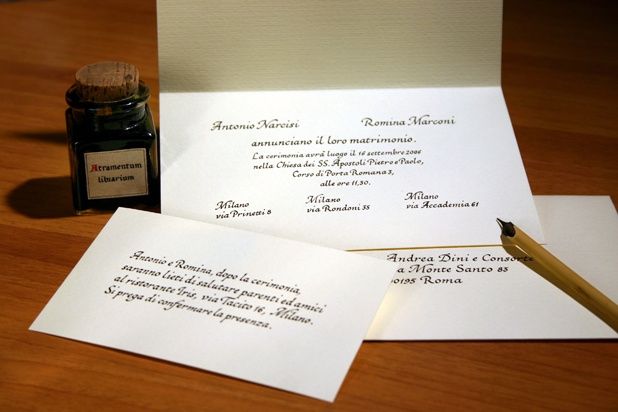 Atramentum
librarium
Antonio Narcisi Romina Marconi
annunciano il loro matrimonio.
La cerimonia avrà luogo il 16 settembre 2006
nella Chiesa dei SS. Apostoli Pietro e Paolo,
Corso di Porta Romana 3,
alle ore 11,30.
Milano
via Prinetti 8
Milano
via Rondoni 35
Milano
via Accademia 61
Antonio e Romina, dopo la cerimonia,
saranno lieti di salutare parenti ed amici
al ristorante Iris, via Tacito 16, Milano.
Si prega di confermare la presenza.
Andrea Dini e Consorte
a Monte Santo 83
00195 Roma